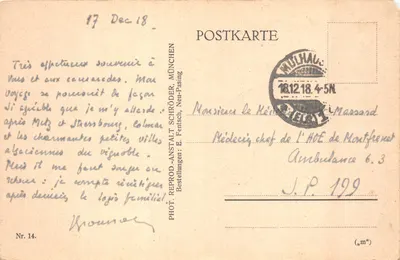 17 Dec 18.
Très affectueux souvenir à
vous et aux camarades. Mon
voyage se poursuit de façon
si agréable que je m'y attarde :
après Metz et Strasbourg, Colmar
et les charmantes petites villes
alsaciennes du vignoble.
Mais il me faut songer au
retour : je compte réintégrer
après demain le logis familial
Nr. 14.
PHOT. REPROD.-ANSTALT SCHRÖDER, MÜNCHEN
Bestellungen: E. Fertisch, Neu-Pasing
POSTKARTE
MÜLHAUS
18.12.18. 4-5N.
(ELS)
1
Monsieur le Massard
Médecin chef de l'HOE de Montfrenet
Ambulance 6.3
S.P. 199
("m")